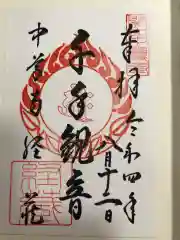 奉拝
令和四年
八月十二日
千手観音
中尊寺
経蔵